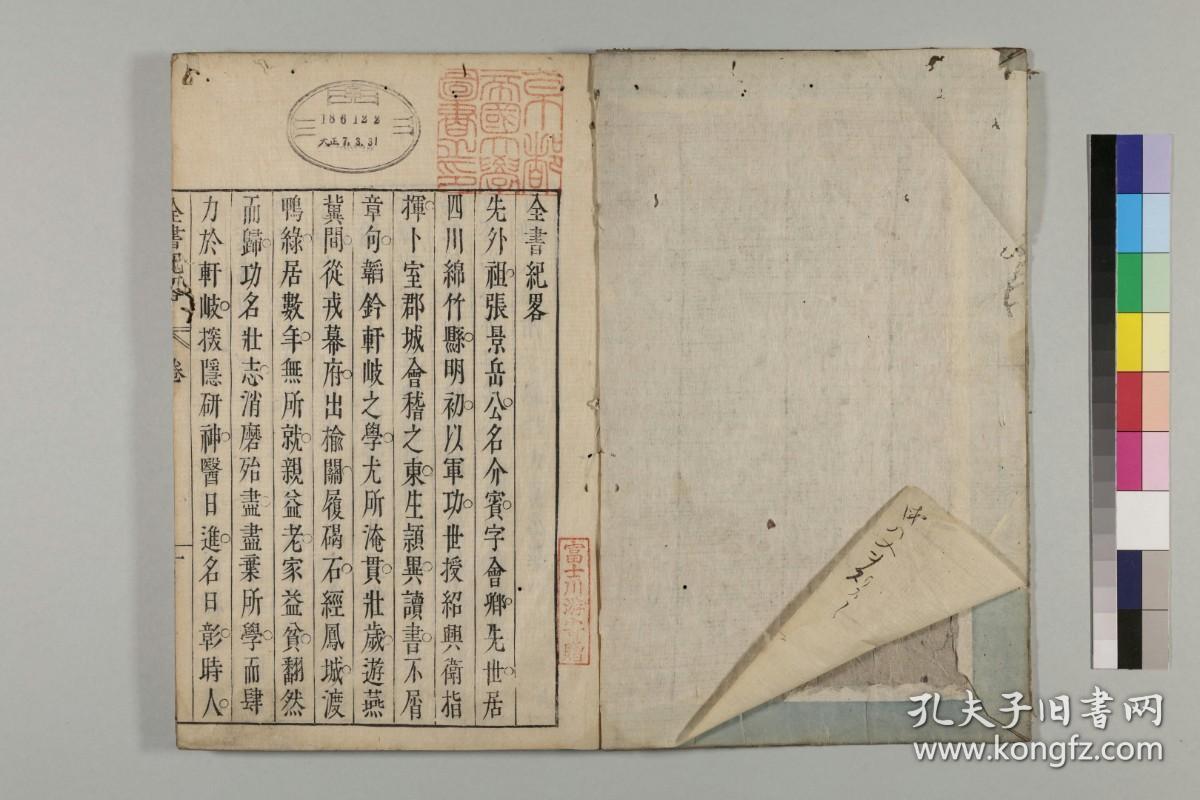 全書紀畧
先外祖張景岳公名介賓字會卿先世居
四川綿竹縣明初以軍功世授紹興衛指
揮卜室郡城會稽之東生頴異讀書不屑
章句韜鈐軒岐之學尤所淹貫壯歲遊燕
冀間從戎幕府出揄關履碣石經鳳城渡
鴨綠居數年無所就親益老家益貧翻然
而歸功名壯志消磨殆盡盡棄所學而肆
力於軒岐探隱研神醫日進名日彰時人
全書紀畧
卷
一
186122
大正7.3.31
京都
帝國大學
圖書之印
富士川游寄贈
孔夫子旧书网
www.kongfz.com